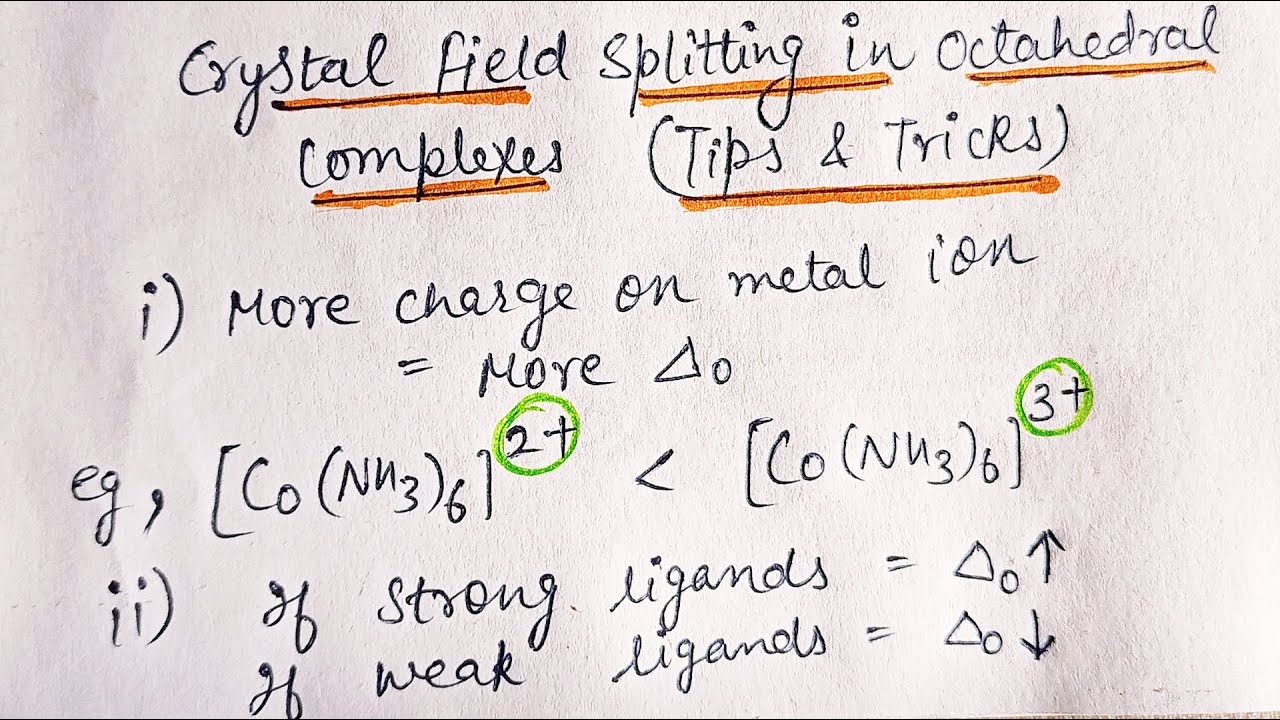 Crystal field Splitting in Octahedral
Complexes (Tips & Tricks)
i) More charge on metal ion
= More Δ₀
eg, [Co(NH₃)₆]²⁺ < [Co(NH₃)₆]³⁺
ii) If strong ligands = Δ₀↑
If weak ligands = Δ₀↓